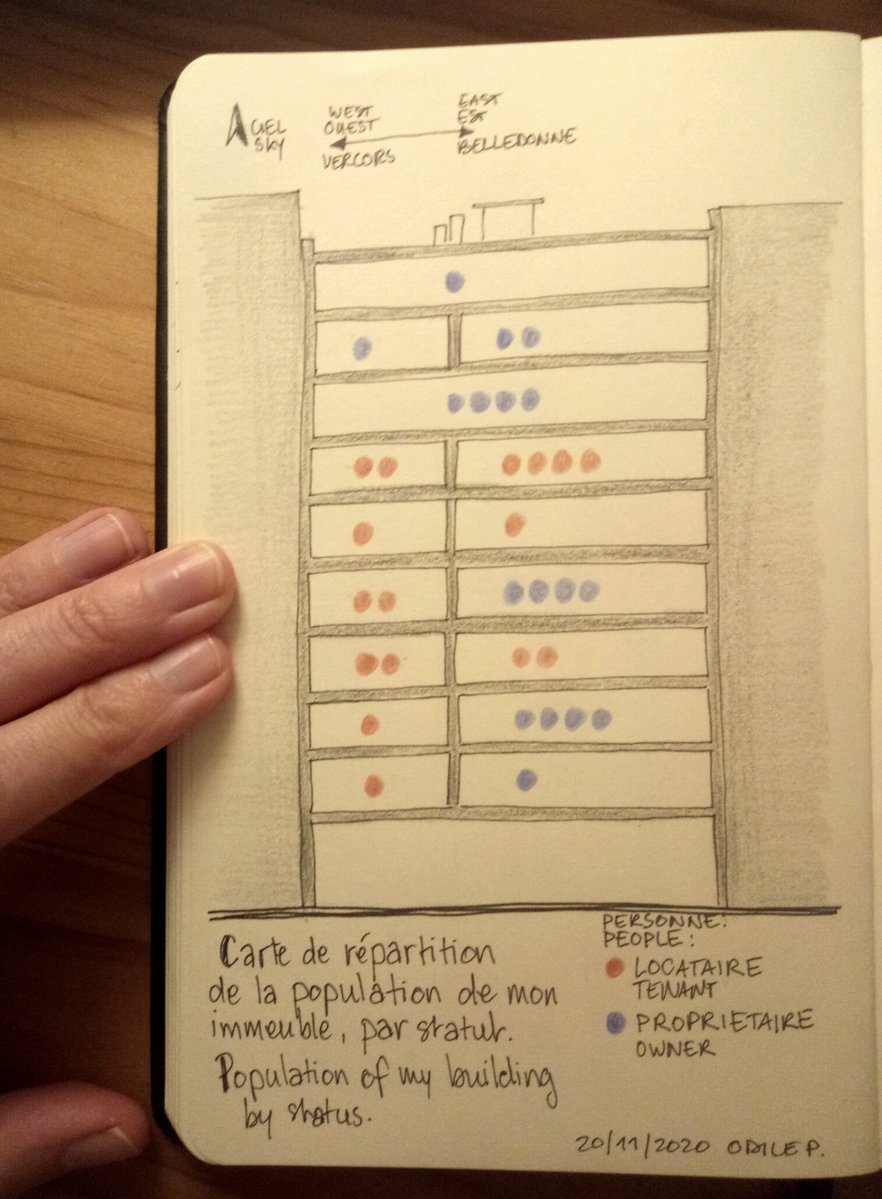 CIEL
SKY
WEST
OUEST
VERCORS
EAST
EST
BELLEDONNE
Carte de répartition
de la population de mon
immeuble, par statut.
Population of my building
by status.
PERSONNE:
PEOPLE:
LOCATAIRE
TENANT
PROPRIETAIRE
OWNER
20/11/2020 ODILE P.